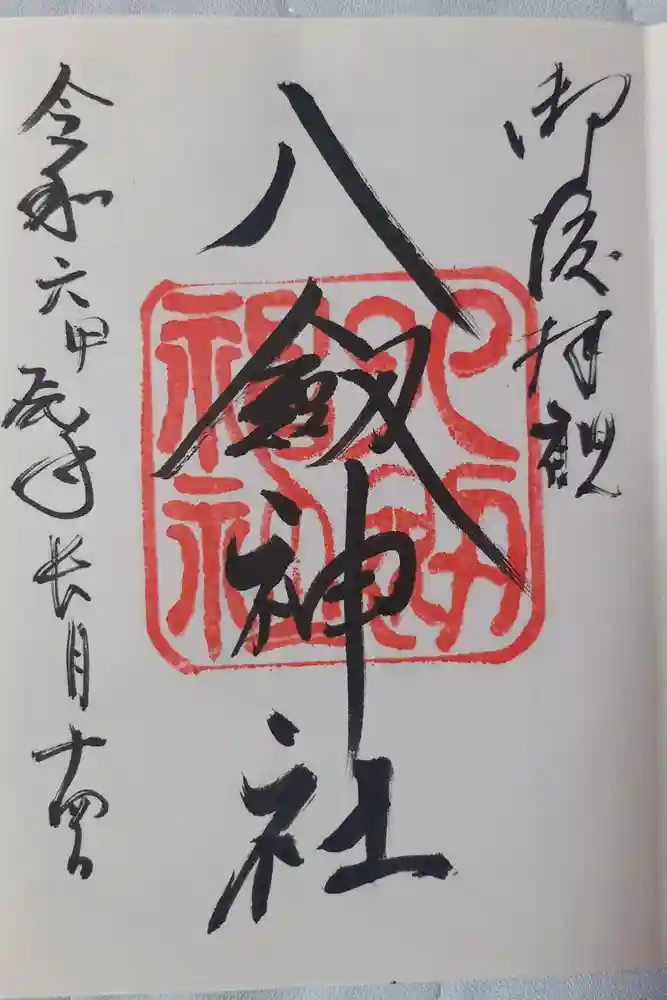 御渡拝観
八劔神社
令和六甲辰年長月十四日
八劔
神社